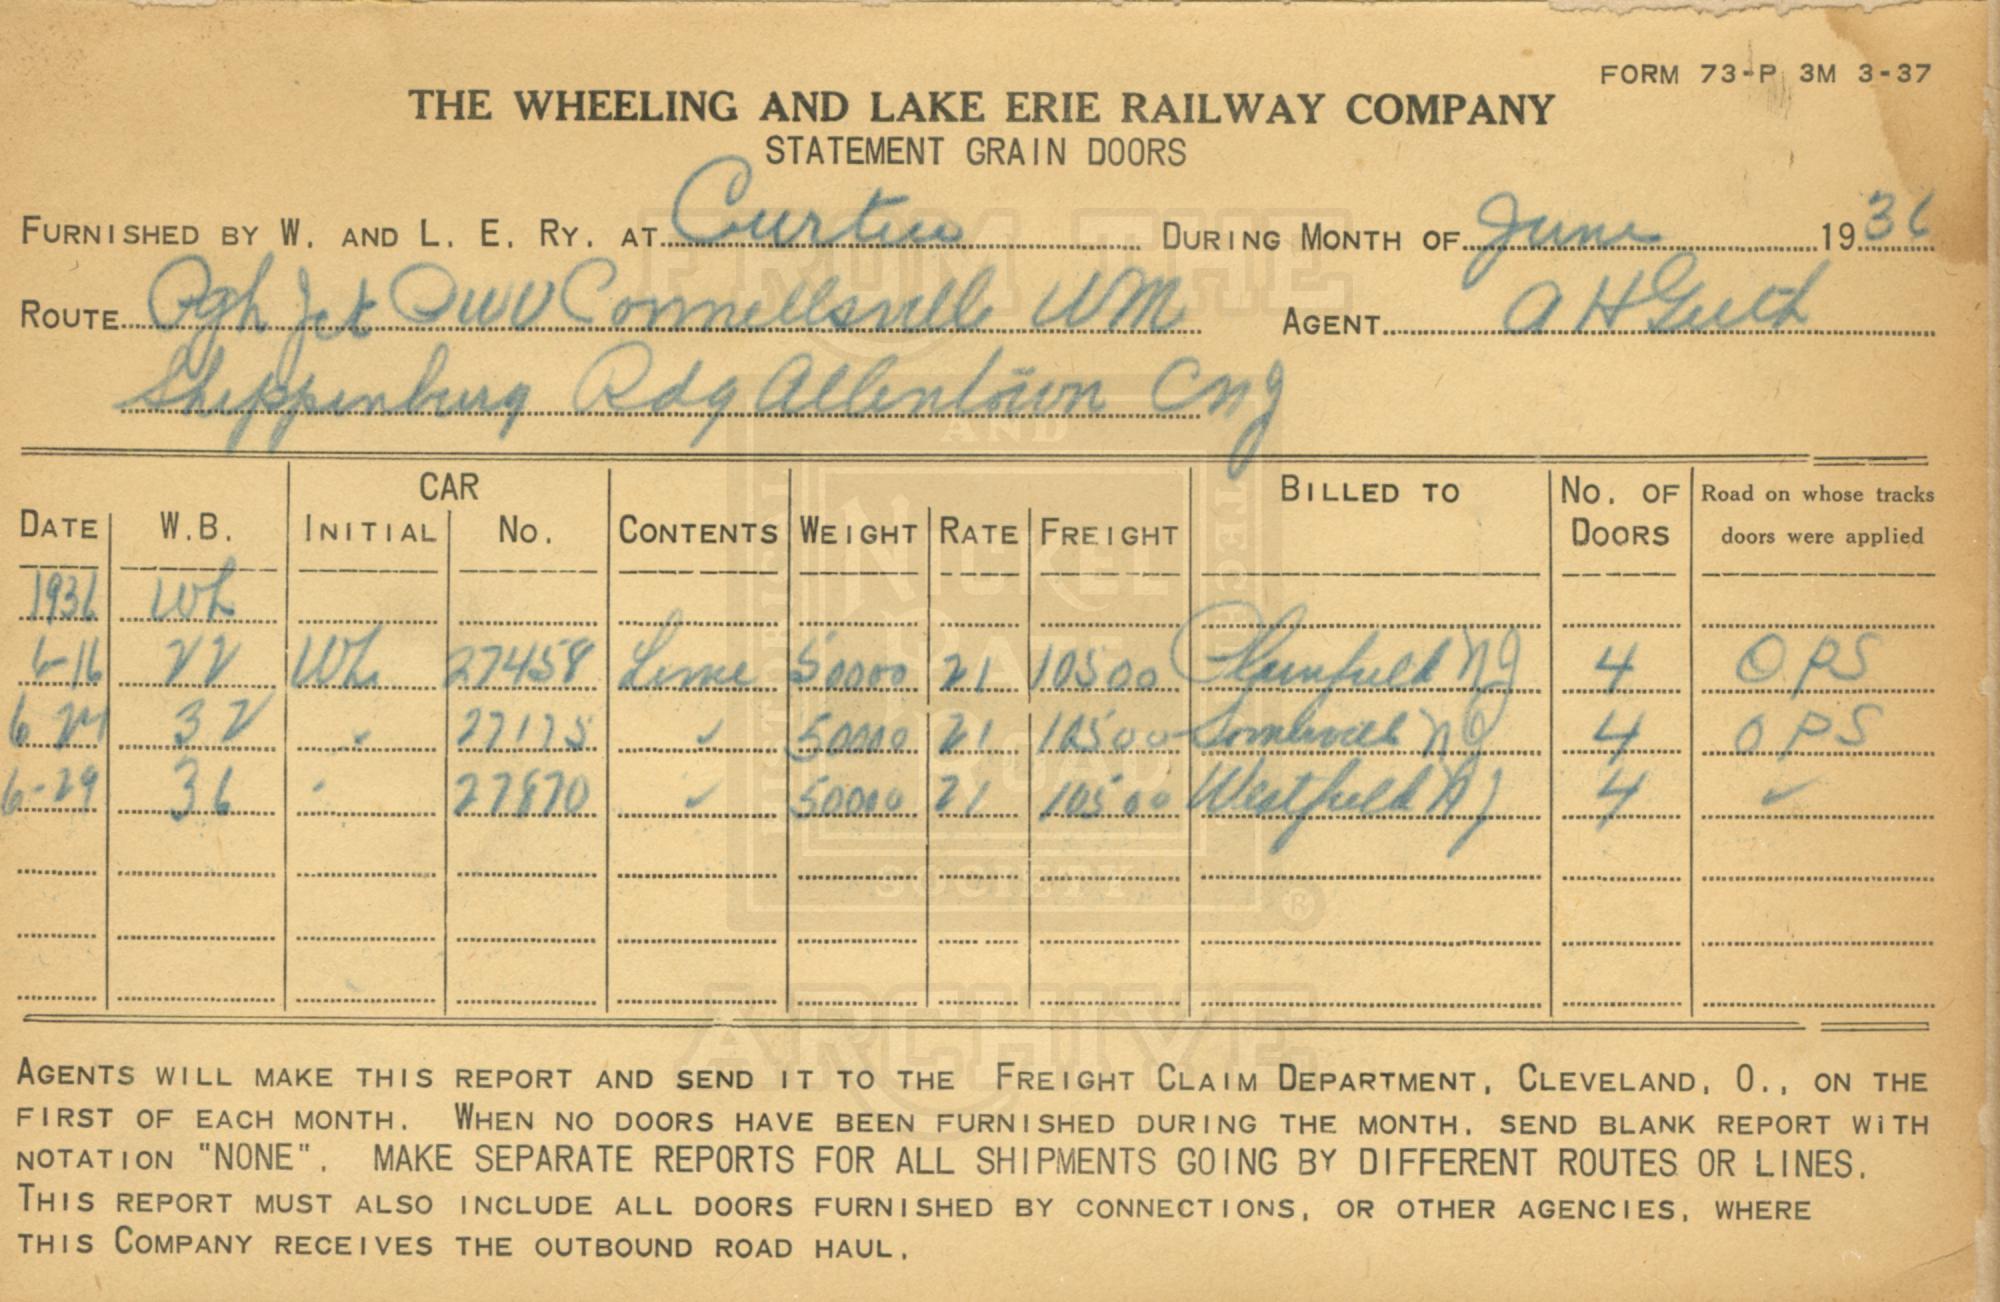 FORM 73-P 3M 3-37
THE WHEELING AND LAKE ERIE RAILWAY COMPANY
STATEMENT GRAIN DOORS
FURNISHED BY W. AND L. E. RY. AT Curtice DURING MONTH OF June 1936
ROUTE Pgh Jct PWV Connellsville WM AGENT A H Guth
Shippenburg Rdg Allentown CNJ
CAR BILLED TO NO. OF Road on whose tracks
DATE W.B. INITIAL NO. CONTENTS WEIGHT RATE FREIGHT DOORS doors were applied
1936 WL
6-16 22 WL 27458 Lime 50000 21 105 00 Plainfield NJ 4 OPS
6 24 32 " 27175 " 50000 21 105 00 Somerville NJ 4 OPS
6-29 36 " 27870 " 50000 21 105 00 Westfield NJ 4 "
AGENTS WILL MAKE THIS REPORT AND SEND IT TO THE FREIGHT CLAIM DEPARTMENT, CLEVELAND, O., ON THE
FIRST OF EACH MONTH. WHEN NO DOORS HAVE BEEN FURNISHED DURING THE MONTH, SEND BLANK REPORT WITH
NOTATION "NONE". MAKE SEPARATE REPORTS FOR ALL SHIPMENTS GOING BY DIFFERENT ROUTES OR LINES.
THIS REPORT MUST ALSO INCLUDE ALL DOORS FURNISHED BY CONNECTIONS, OR OTHER AGENCIES, WHERE
THIS COMPANY RECEIVES THE OUTBOUND ROAD HAUL.
FROM THE
NICKEL PLATE ROAD
HISTORICAL AND TECHNICAL SOCIETY
ARCHIVE